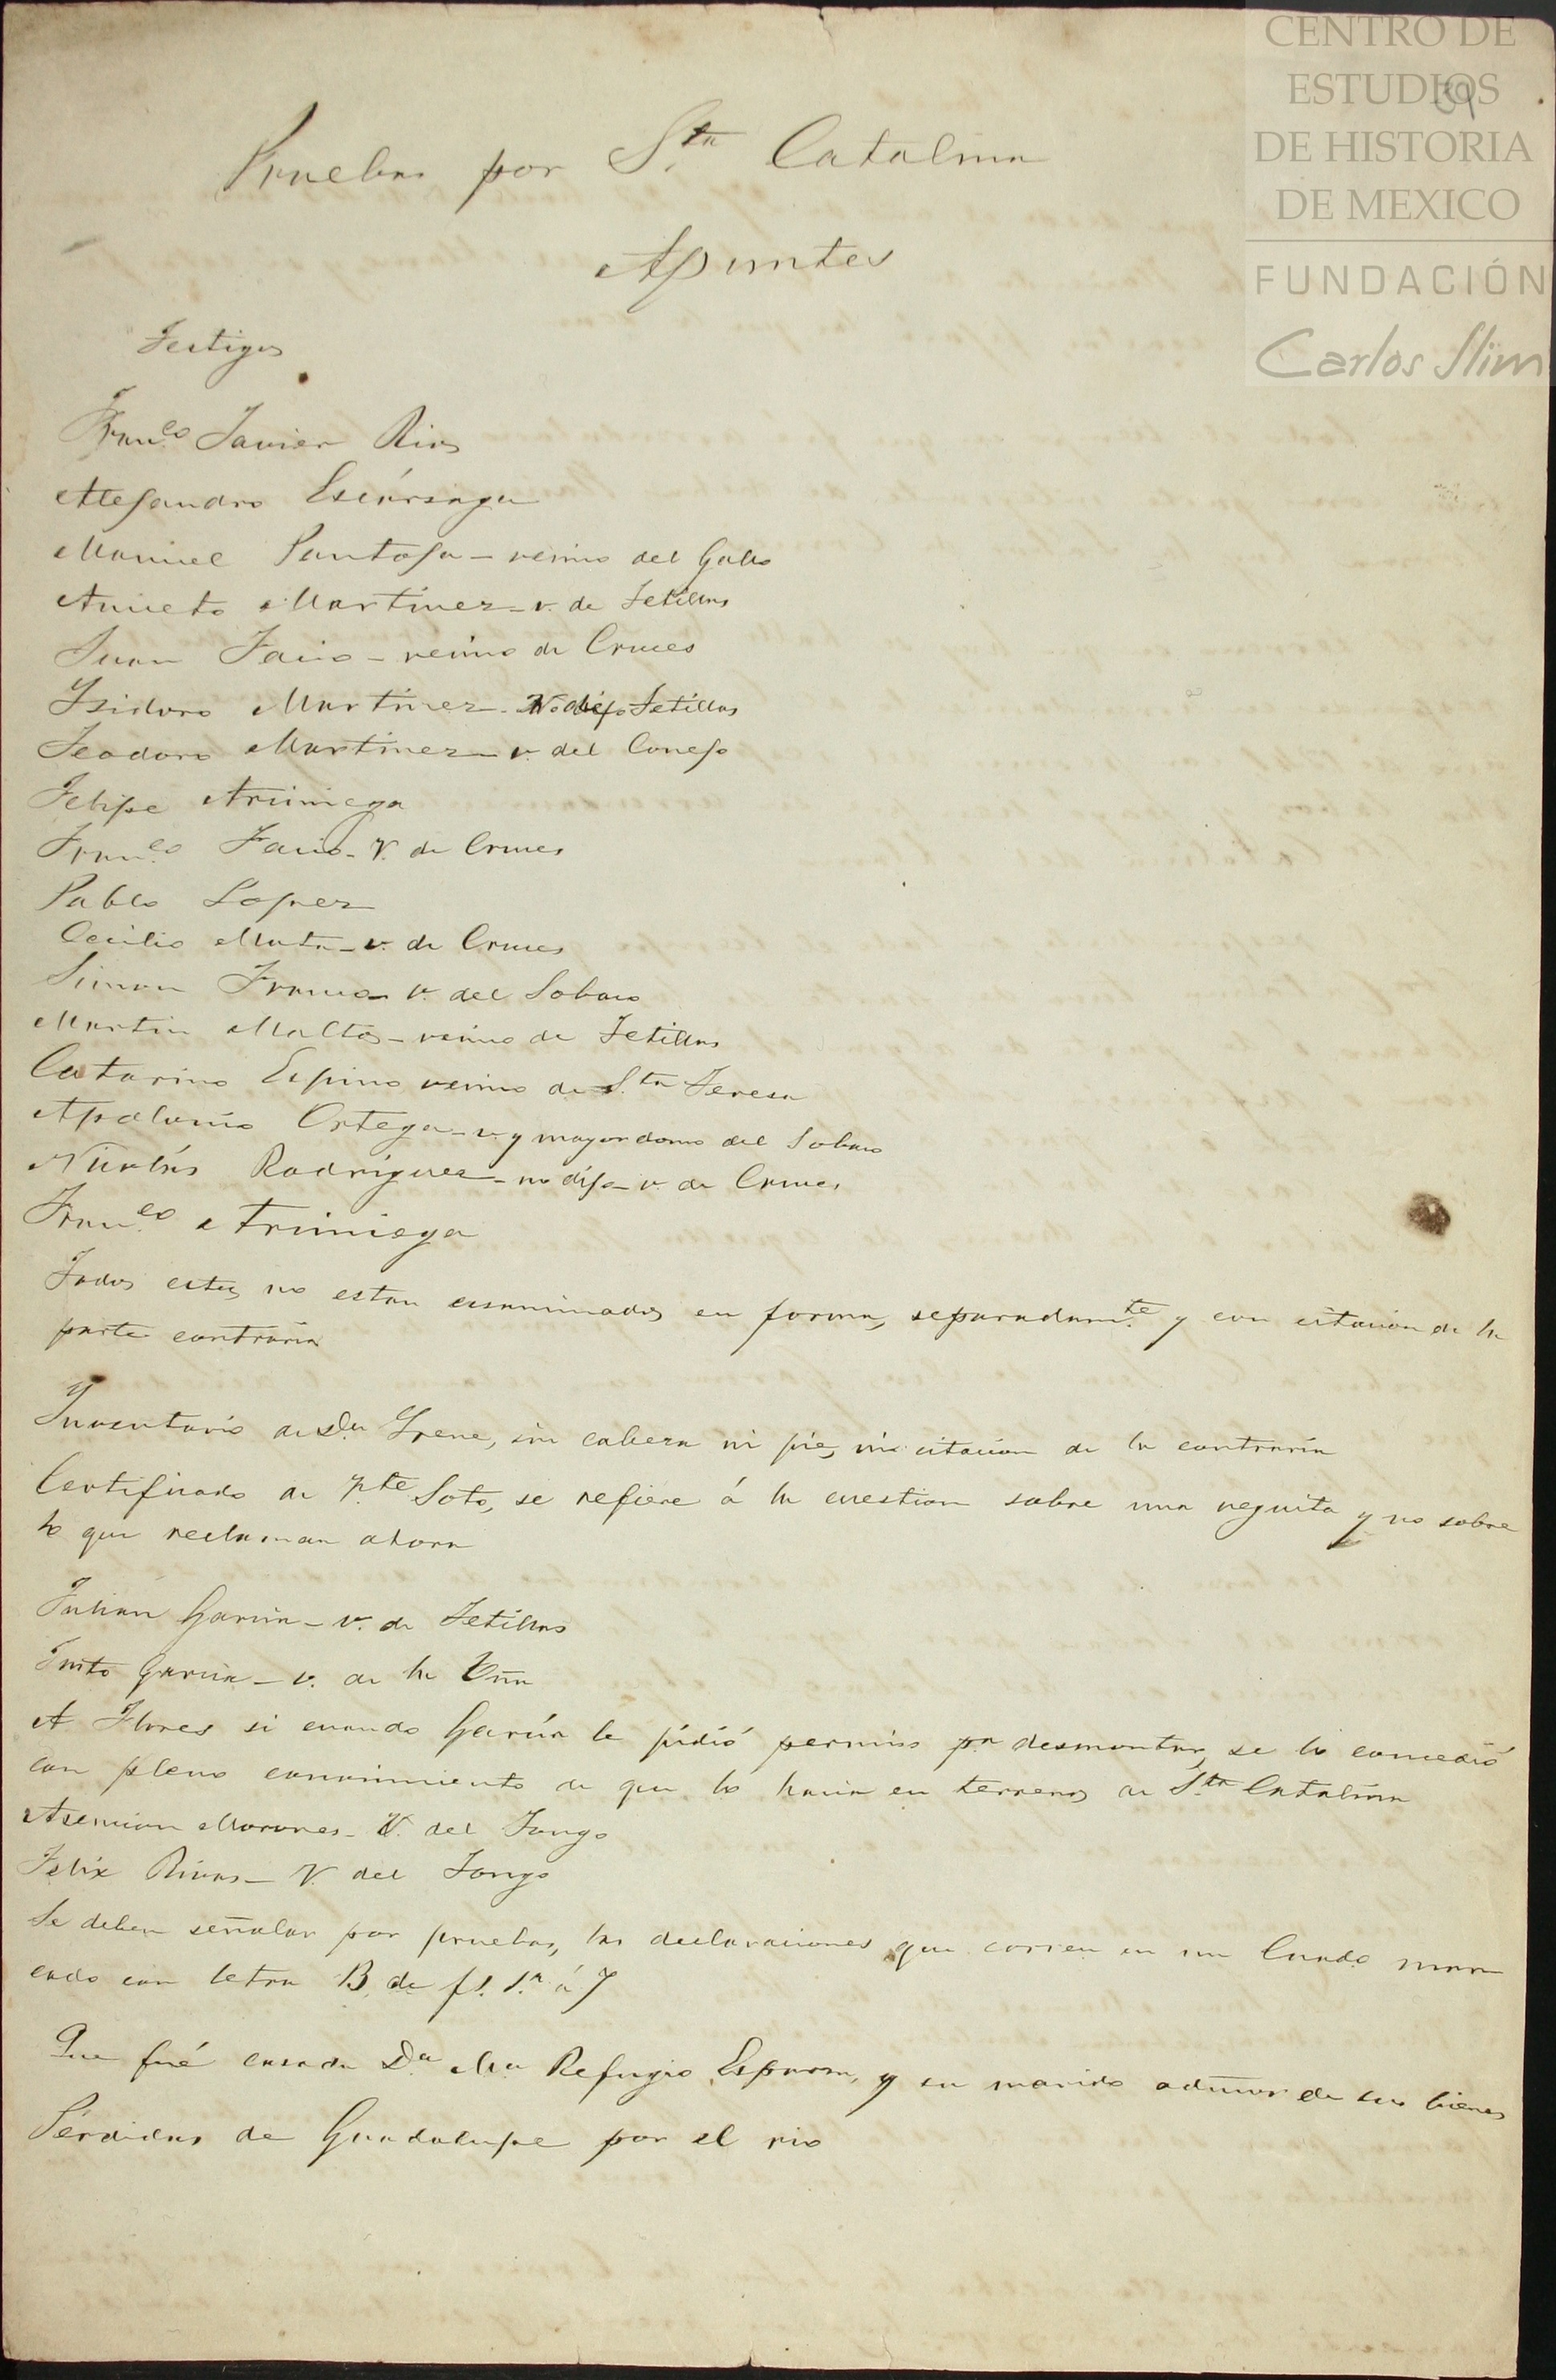 CENTRO DE
ESTUDIOS
DE HISTORIA
DE MEXICO
FUNDACIÓN
Carlos Slim
Pruebas por Sta. Catalina
Apuntes
Testigos
Franco. Javier Rios
Alejandro Escárzaga
Manuel Pantoja - vecino del Gallo
Aniceto Martinez - v. de Tetillas
Juan Facio - vecino de Cruces
Isidoro Martinez - No dijo Tetillas
Teodoro Martinez - v. del Conejo
Felipe Arciniega
Franco. Facio - V. de Cruces
Pablo Lopez
Cecilio Mata - v. de Cruces
Simon Franco - v. del Sobaco
Martin Maltos - vecino de Tetillas
Catarino Espino vecino de Sta. Teresa
Apolonio Ortega - v. y mayordomo del Sobaco
Nicolás Rodríguez - no dijo - v. de Cruces
Franco. Arciniega
Todos estos no estan examinados en forma, separadamte. y con citacion de la
parte contraria
Inventario de Da. Irene, sin cabeza ni pie, sin citacion de la contraria
Certificado de Soto, se refiere á la cuestion sobre una reguita y no sobre
lo que reclaman ahora
Julián García - v. de Tetillas
Justo García - v. de la Uña
A Flores si cuando García le pidió permiso pa. desmontar, se lo concedió
con pleno conocimiento de que lo hacia en terrenos de Sta. Catalina
Asencion Morones - V. del Tongo
Felix Rivas - V. del Tongo
Se deben señalar por pruebas, las declaraciones que corren en un Cuado. mar
cado con letra B, de fs. 1a. á 7
Que fué casada Da. Ma. Refugio Esparza, y su marido admor. de sus bienes
Perdidas de Guadalupe por el rio